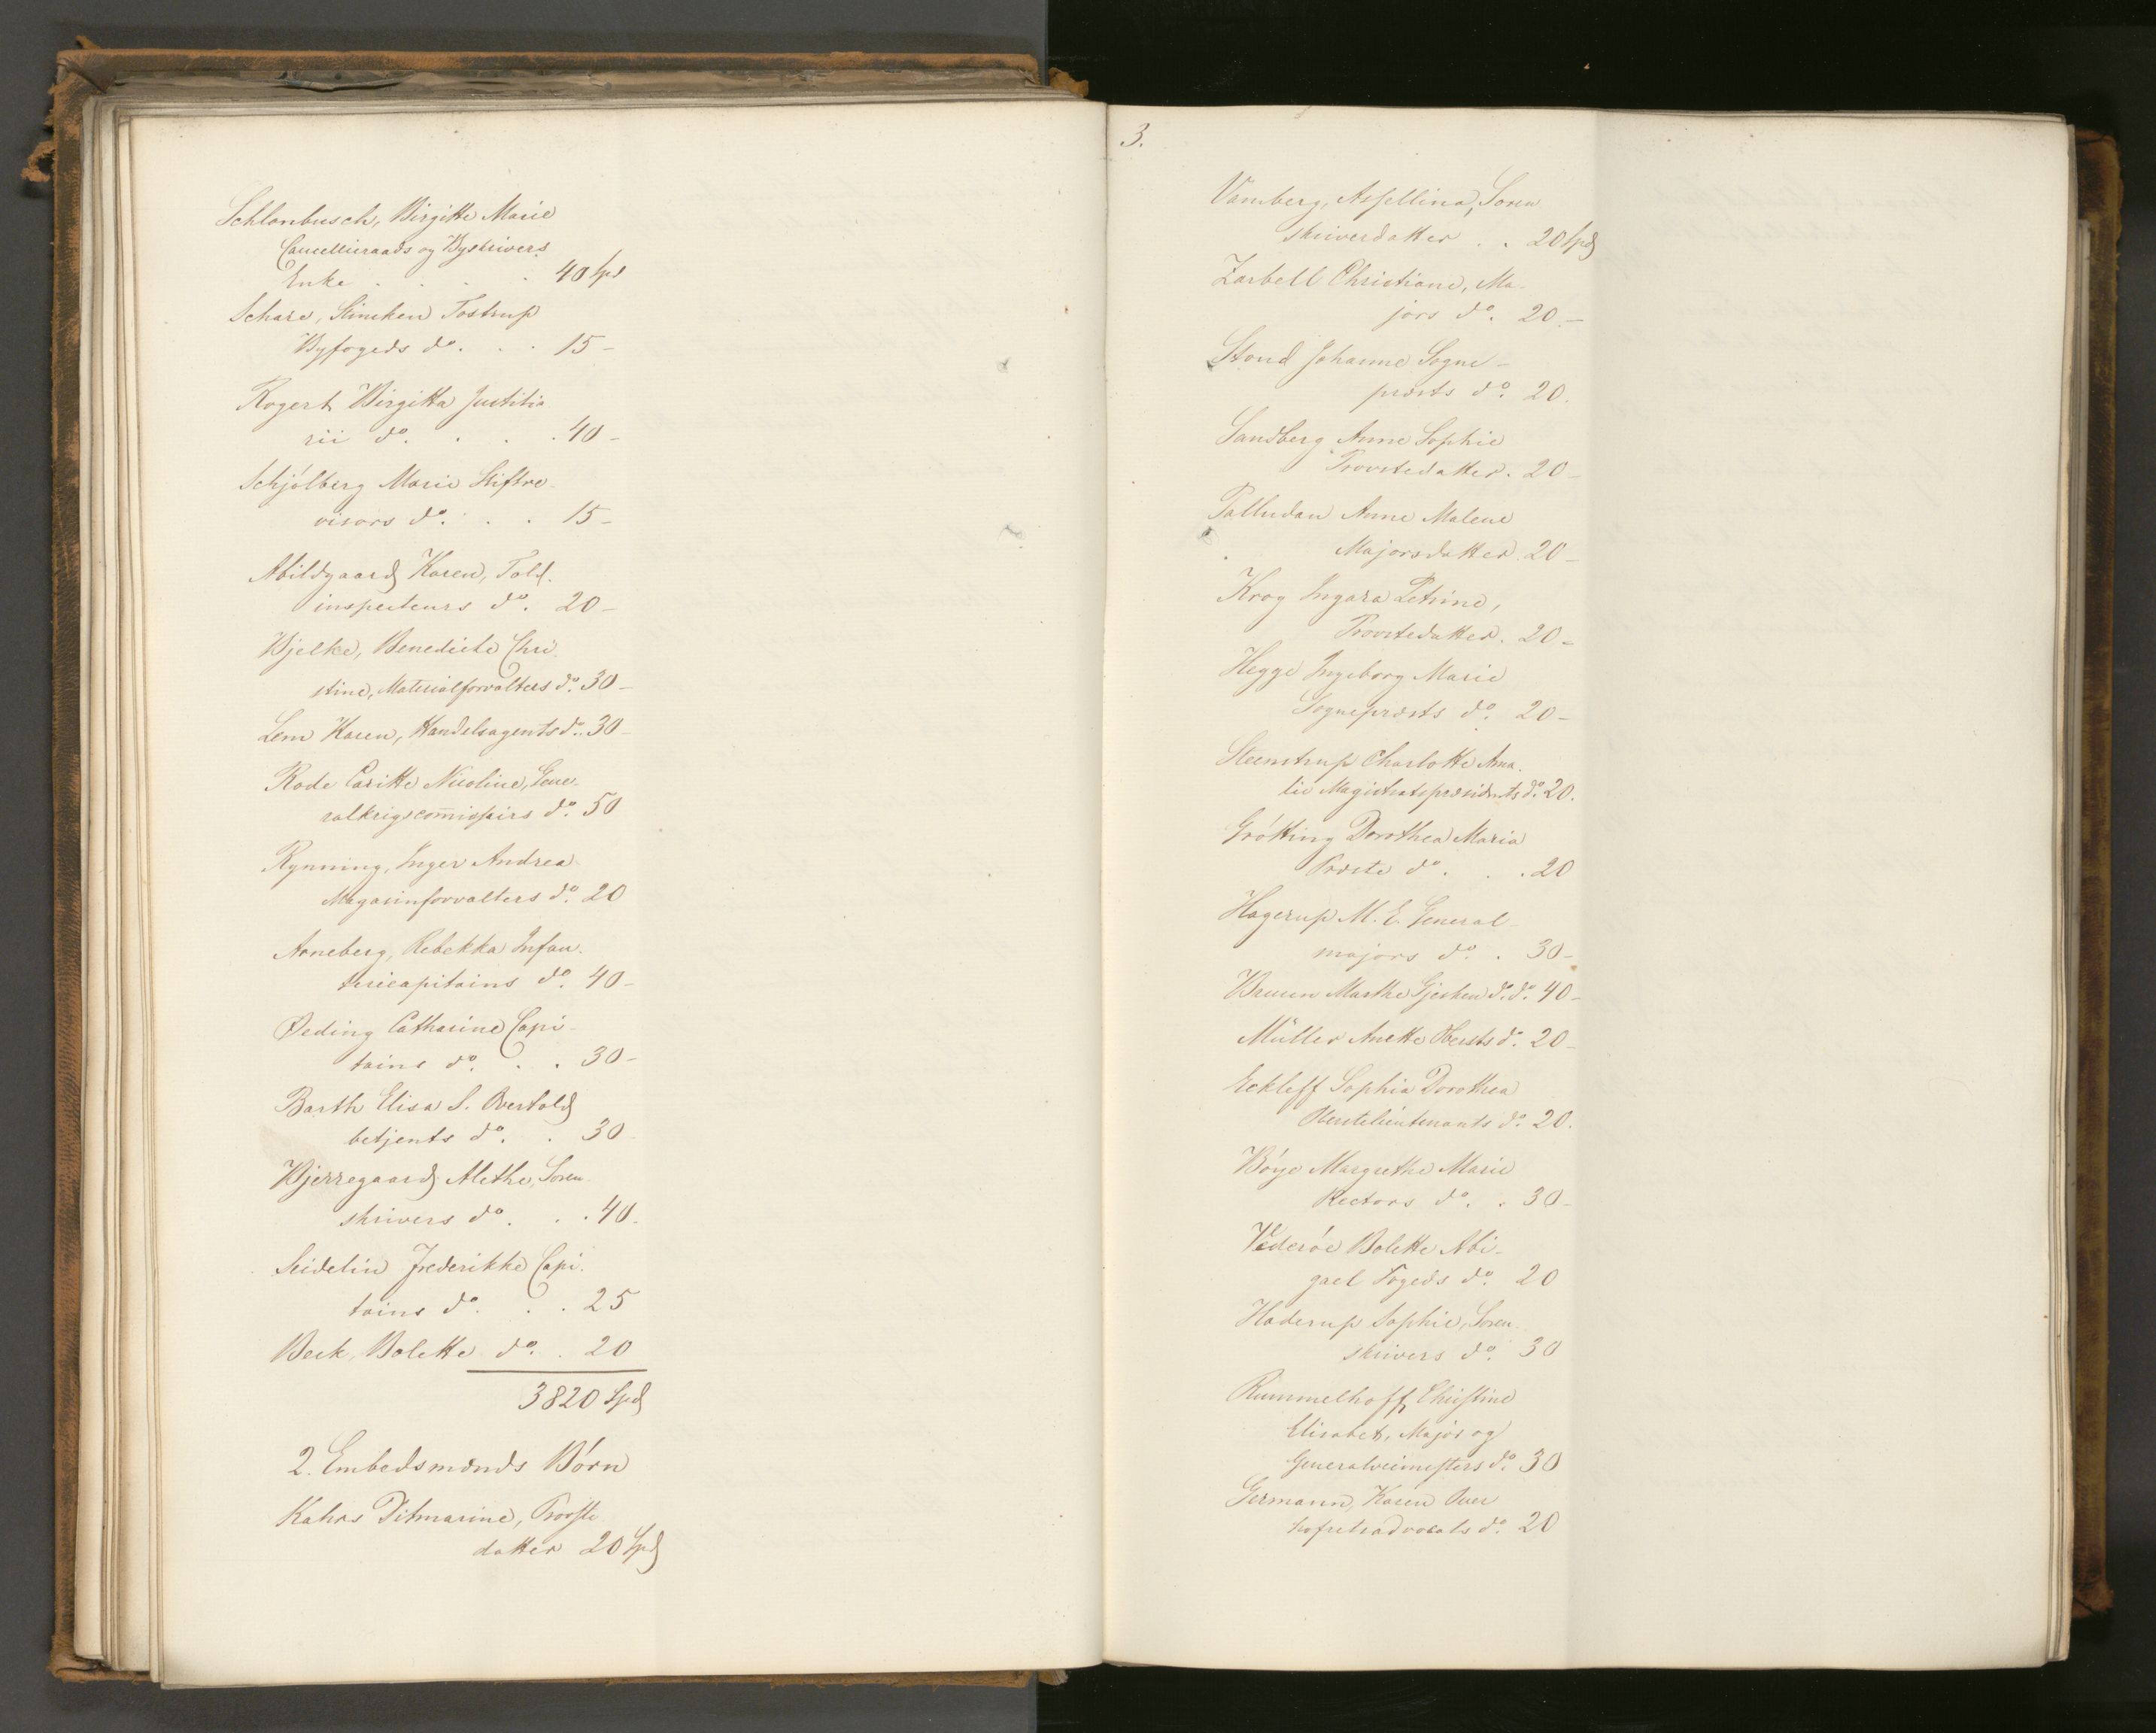 Schlanbusch, Birgitte Marie
Cancelliraads og Byskrivers
Enke . . . . 40 Spd
Schare, Stincken Tostrup
Byfogeds do. . . 15 -
Rogert Birgitta Justitia
rii do. . . . 40 -
Schjólberg Marie Stiftre-
visors do. . . 15 -
Abildgaard Karen, Told.
inspecteurs do. 20 -
Bjelke, Benedicte Chri.
stine, Materialforvalters do. 30 -
Lem Karen, Handelsagents do. 30 -
Rode Caritte Nicoline, Gene-
ralkrigscomissairs do. 50
Rynning, Inger Andrea
Magasinforvalters do. 20
Arneberg, Rebekka Infan.
tericapitains do. 40 -
Øeding Catharine Capi-
tains do. . . 30 -
Barth Elisa S. Overtold
betjents do. . 30
Bjerregaard Alethe, Soren
skrivers do. . . 40.
Seidelin Frederikke Capi.
tains do. . . 25
Beck, Bolette do. . 20
3820 Spd
2. Embedsmænds Börn
Kahrs Ditmarine, Provste
datter 20 Spd
3.
Vamberg, Assellina, Soren
skriverdatter . . 20 Spd
Zarbell Christiane, Ma-
jors do. 20 -
Stoud Johanne Sogne-
præsts do. 20.
Sandberg Anne Sophie
Provstedatter. 20 -
Palludan Anne Malene
Majorsdatter. 20 -
Krog Ingara Petrine,
Provstedatter. 20 -
Hegge Ingeborg Marie
Sognepræsts do. 20 -
Steenstrup Charlotte Ama.
lie Magistratspræsidents do. 20.
Grótting Dorothea Maria
Præste do. . . 20
Hagerup M. E. General-
majors do. . 30 -
Bruun Marthe Gjesken do. do. 40 -
Müller Anette Obersts do. 20 -
Eckleff Sophia Dorothea
Oberstelieutenants do. 20.
Bóye Margrethe Marie
Rectors do. . 30 -
Vederóe Bolette Abi-
gael Fogeds do. 20
Haderup Sophie, Soren.
skrivers do. 30
Rummelhoff, Christine
Elisabet, Major og
Generalveimesters do. 30
Germann, Karen Over
hofretsadvocats do. 20